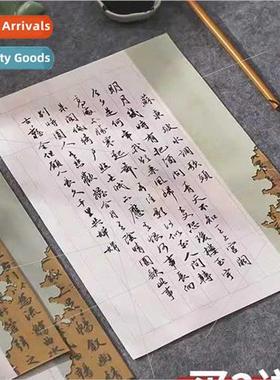 Arrivals
ty Goods
蘇東坡水調歌頭
明月幾時有把酒問青天不知天上宮闕
今夕是何年我欲乘風歸去又恐瓊樓玉宇
高處不勝寒起舞弄清影何似在人間轉
朱閣低綺戶照無眠不應有恨何事長向
別時圓人有悲歡離合月有陰晴圓缺此事
古難全但願人長久千里共嬋娟